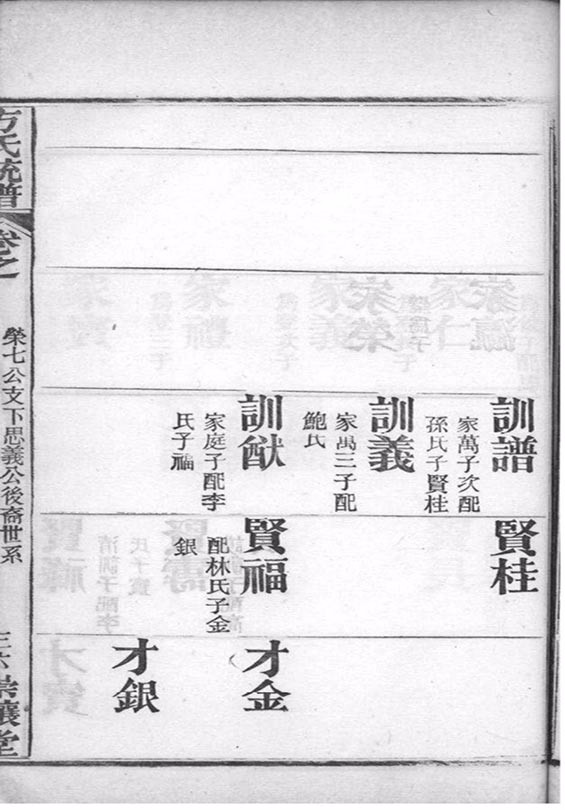 訓譜
家萬子次配
孫氏子賢桂
訓義
家萬三子配
鮑氏
訓猷
家庭子配李
氏子福
賢桂
賢福
配林氏子金
銀
才金
才銀
方氏統譜
卷之
榮七公支下思義公後裔世系
三六
崇讓堂